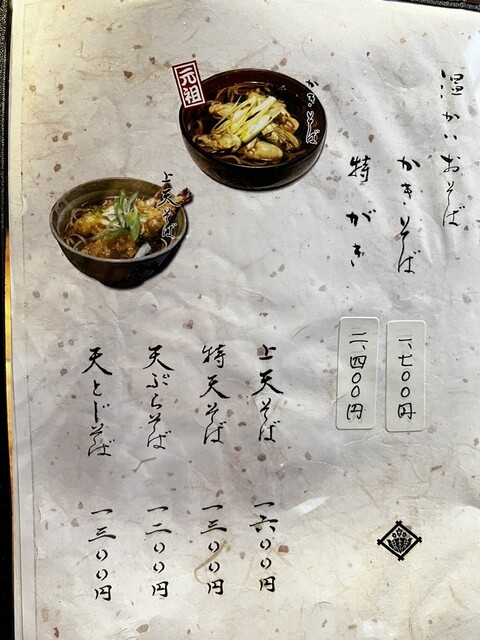 温かいおそば
かきそば
一、七〇〇円
特がき
二、四〇〇円
元祖
かきそば
上天そば
上天そば
一六〇〇円
特天そば
一三〇〇円
天ぷらそば
一二〇〇円
天とじそば
一三〇〇円